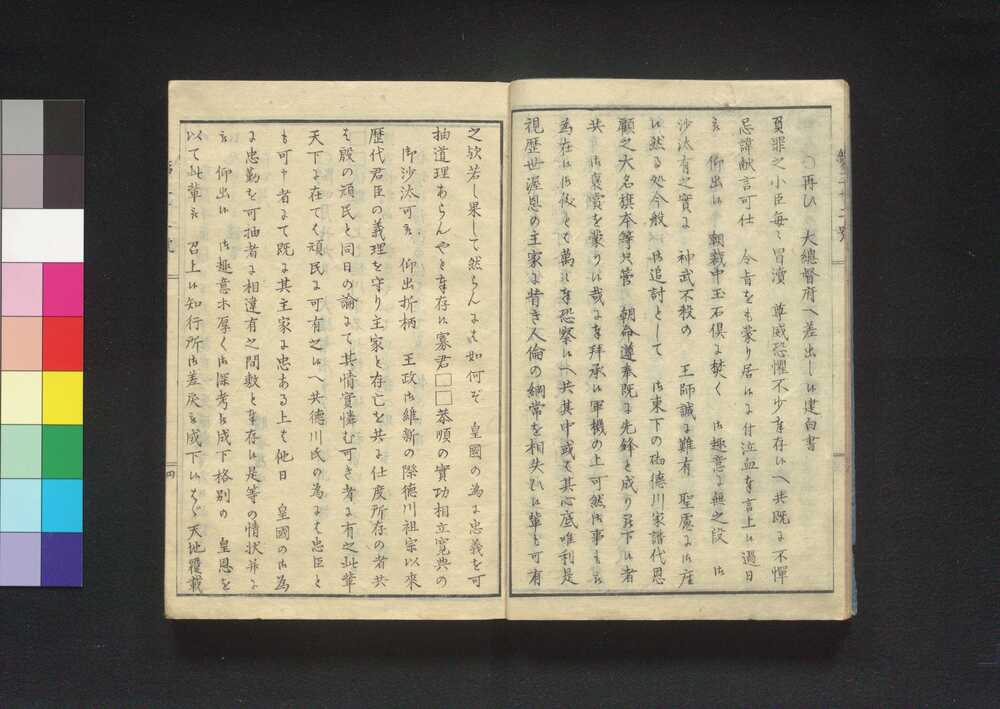 ○再ひ 大總督府へ差出し候建白書
負罪之小臣毎々冒瀆 尊威恐懼不少奉存候へ共既に不憚
忌諱献言可仕 令旨をも蒙り居候に付泣血奉言上候過日
被 仰出候 朝裁中玉石倶に焚く 御趣意に無之段 御
沙汰有之實に 神武不殺の 王師誠に難有 聖慮に御座
候然る処今般 御追討として 御東下の砌徳川家譜代恩
顧之大名旗本等只管 朝命遵奉既に先鋒と成り罷下候者
共 御褒賞を蒙り候哉に奉拝承候軍機の上可然御事も被
為在候御儀とて萬々奉恐察候へ共其中或て其心底唯利是
視歴世渥恩の主家に背き人倫の綱常を相失ひ候輩も可有
之欤若し果して然らんにも如何そ 皇國の為に忠義を可
抽道理あらんやと奉存候寡君□□恭順の實功相立寛典の
御沙汰可被 仰出折柄 王政御維新の際徳川祖宗以来
歴代君臣の義理を守り主家と存亡を共に仕度所存の者共
も殷の頑民と同日の論にて其情實憐む可き者に有之此輩
天下に在てハ頑民に可有之候へ共徳川氏の為にも忠臣と
も可申者にて既に其主家に忠ある上も他日 皇國の御為
に忠勤を可抽者に相違有之間敷と奉存候是等の情状并に
被 仰出候 御趣意木厚く御深考被成下格別の 皇恩を
以て此輩被 召上候知行所御差戻被成下候ハゞ天地覆載
四